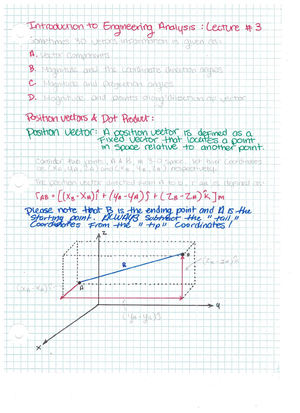 Introduction to Engineering Analysis : Lecture # 3
Sometimes 3D vectors information is given as:
A. Vector Components
B. Magnitude and the Coordinate direction angles
C. Magnitude and Projection angles
D. Magnitude and points along direction of vector
Position vectors & Dot Product:
Position Vector: A position vector is defined as a
Fixed vector that locates a point
in Space relative to another point.
Consider two points, A & B in 3-D space. Let their Coordinates
be (XA, YA, ZA) and (XB, YB, ZB) respectively.
The position vector directed from A to B, r AB is defined as:
rAB = [(XB - XA)î + (YB - YA)ĵ + (ZB - ZA)k̂]m
Please note that B is the ending point and A is the
Starting point. ALWAYS subtract the "tail"
Coordinates From the "tip" Coordinates!
Z
B
R
(ZB - ZA)k̂
A
(XB - XA)î
y
(YB - YA)ĵ
X